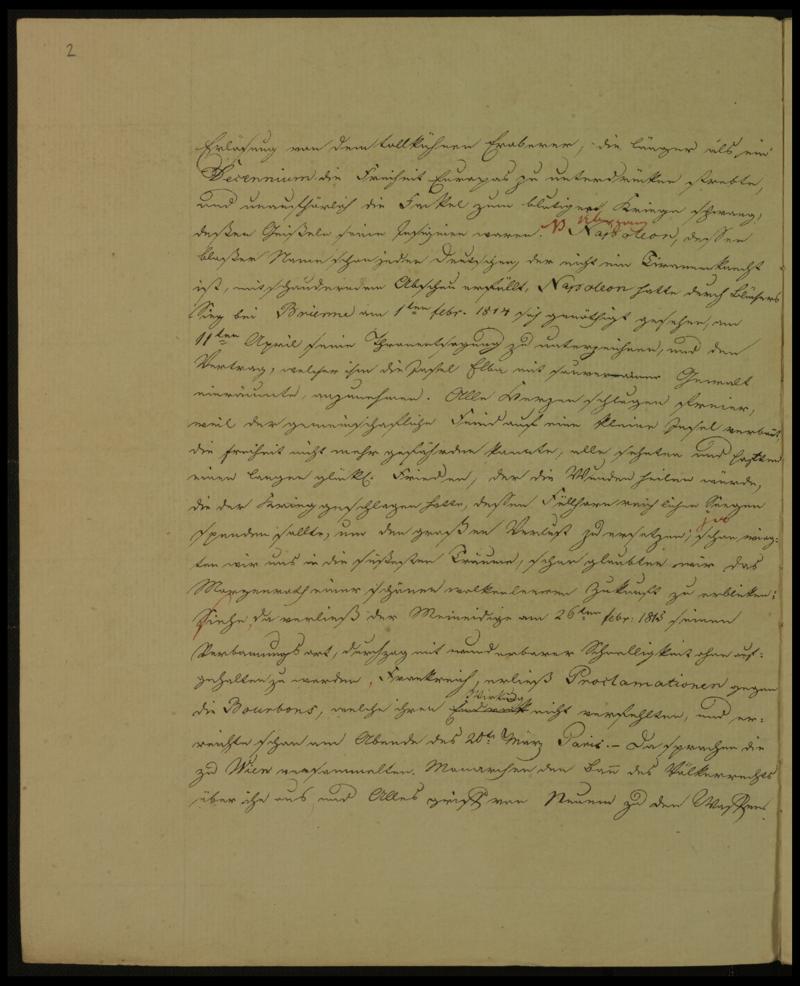 2
Erlösung von dem tollkühnen Eroberer, die länger als ein
Decennium die Freiheit Europas zu unterdrücken strebte,
und unaufhörlich die Fackel zum blutigen Kriege schwang,
dessen Geißeln seine Insignien waren. Übergang Napoleon, dessen
bloßer Name schon jeden Deutschen, der nicht ein Tirannenknecht
ist, mit schauderndem Abscheu erfüllt, Napoleon hatte durch Blüchers
Sieg bei Brienne am 1ten febr. 1814 sich genöthigt gesehen, am
11ten April seine Thronentsagung zu unterzeichnen, und den
Vertrag, welcher ihm die Insel Elba mit souverainer Gewalt
einräumte, anzunehmen. Alle Herzen schlugen freier,
weil der gemeinschaftliche Feind auf eine kleine Insel verbannt
die freiheit nicht mehr gefährden konnte, alle sehnten und hofften
einen langen glückl. Frieden, der die Wunden heilen würde,
die der Krieg geschlagen hatte, dessen Füllhorn reichlichen Segen
spenden sollte, um den großen Verlust zu ersetzen; ja schon wieg-
ten wir uns in die süßesten Träume, schon glaubten wir das
Morgenroth einer schönen wolkenleeren Zukunft zu erblicken:
Siehe, da verließ der Meineidige am 26ten febr: 1815 seinen
Verbannungsort, durchzog mit wunderbarer Schnelligkeit ohne auf-
gehalten zu werden, Frankreich, erließ Proclamationen gegen
die Bourbons, welche ihren Eindruck Wirkung nicht verfehlten, und er-
reichte schon am Abende des 20t. März Paris. – Da sprachen die
zu Wien versammelten Monarchen den Bann des Völkerrechts
über ihn aus und Alles griff von Neuem zu den Waffen.